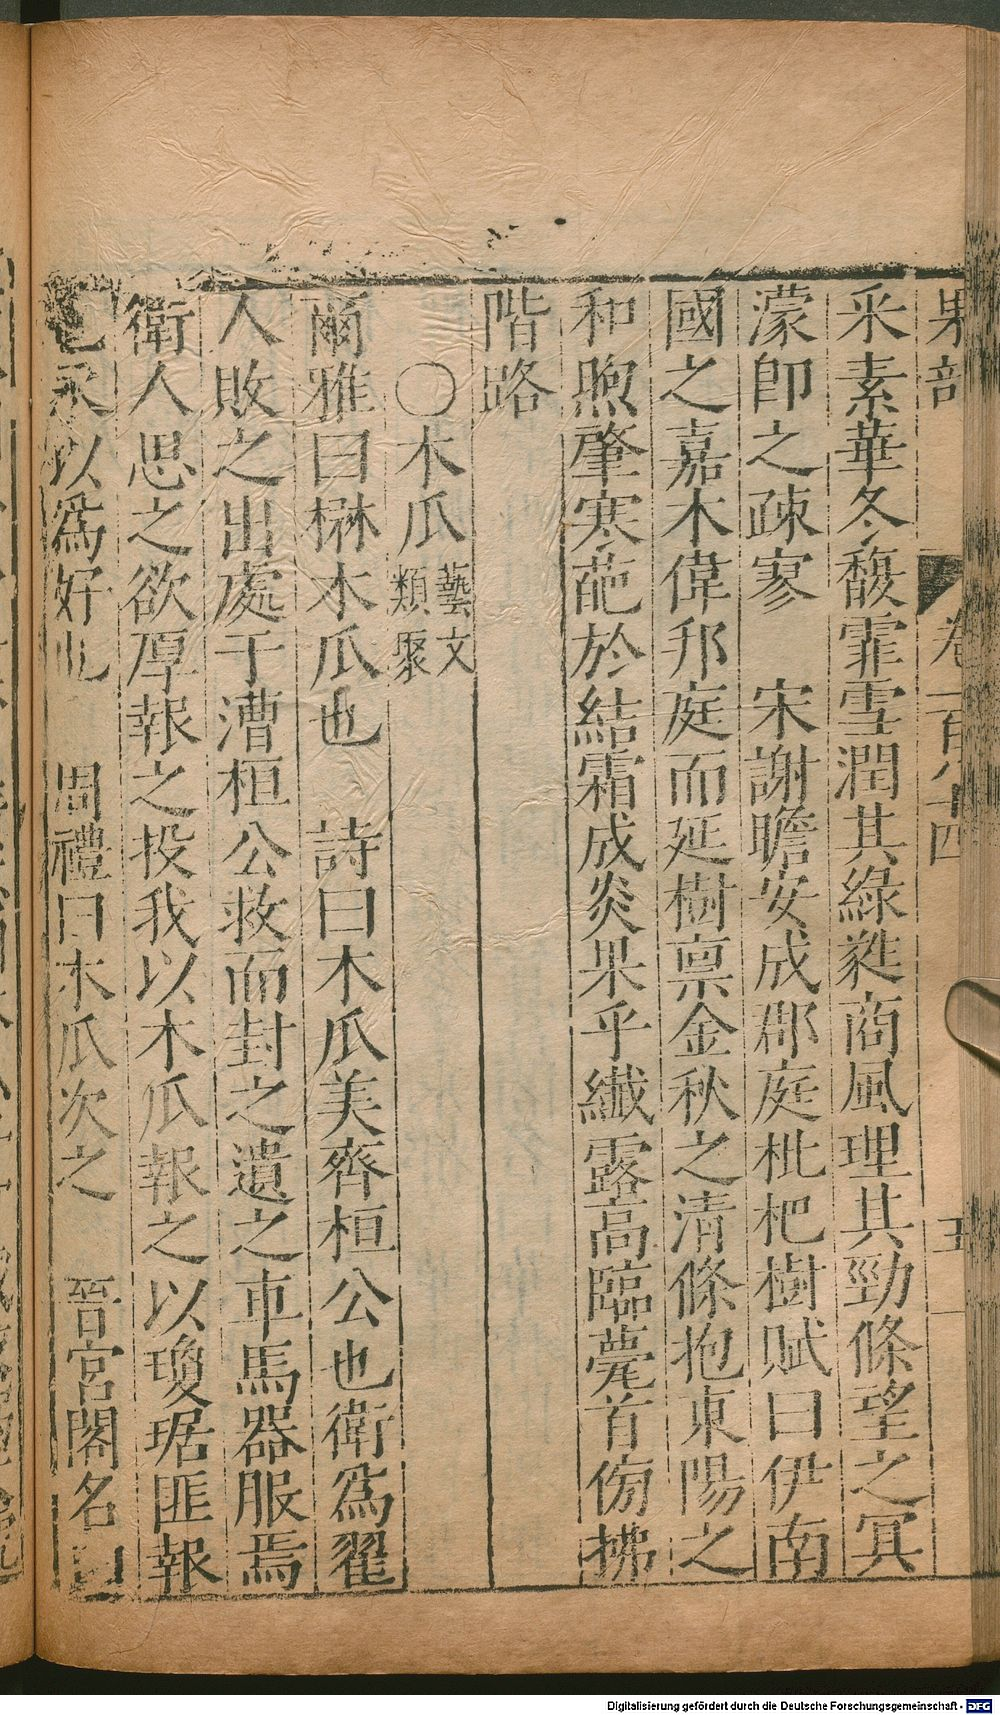 果部 卷一百八十四 五
采素華冬馥霏雪潤其綠蕤商風理其勁條望之冥
濛卽之疎寥 宋謝瞻安成郡庭枇杷樹賦曰伊南
國之嘉木偉邦庭而延樹禀金秋之清條抱東陽之
和煦肇寒葩於結霜成炎果乎纖露高臨甍首傍拂
階路
○木瓜 藝文類聚
爾雅曰楙木瓜也 詩曰木瓜美齊桓公也衛爲翟
人敗之出處于漕桓公救而封之遺之車馬器服焉
衛人思之欲厚報之投我以木瓜報之以瓊琚匪報
也永以爲好也 周禮曰木瓜次之 晉宮閣名曰
Digitalisierung gefördert durch die Deutsche Forschungsgemeinschaft - DFG